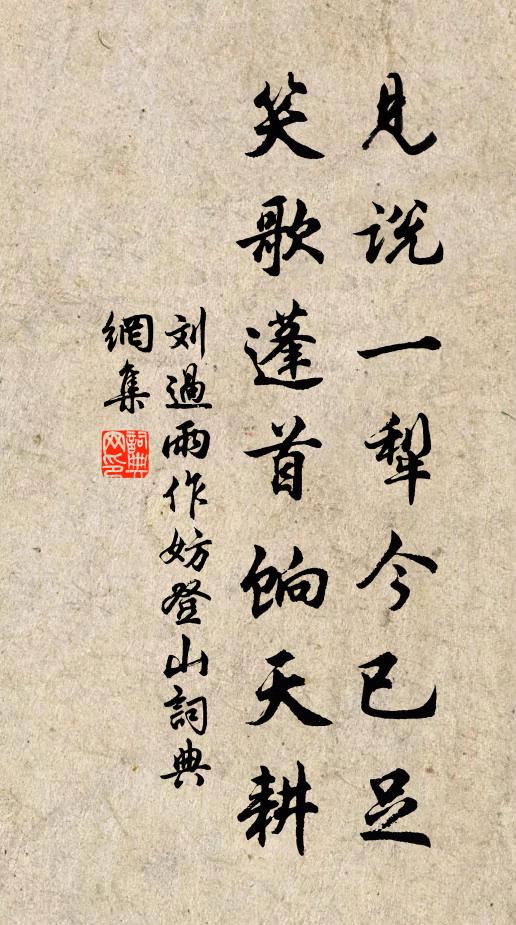 見说一犁今已足
笑歌蓬首饷天耕
刘過雨作妨登山詞典
網集
詞典网印